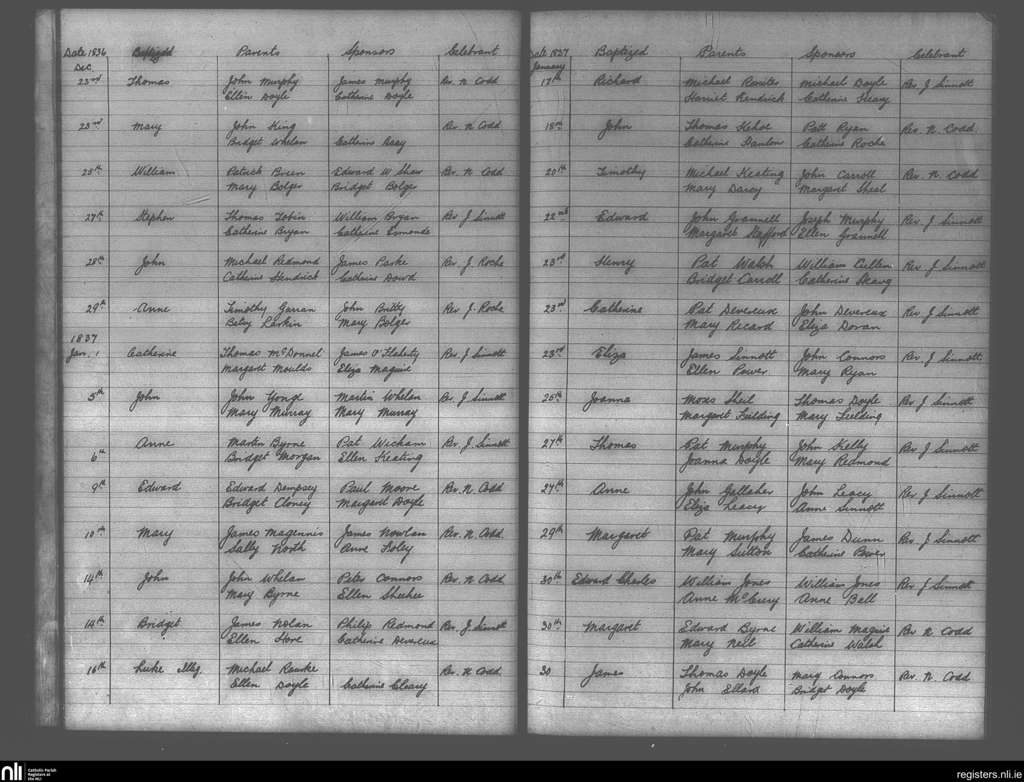 Date 1836 Baptized Parents Sponsors Celebrant
Dec
23rd Thomas John Murphy James Murphy Rev. N. Codd
Ellen Doyle Catherine Doyle
23rd Mary John King Rev. N. Codd
Bridget Whelan Catherine
25th William Patrick Breen Edward W. Shaw Rev. N. Codd
Mary Bolger Bridget Bolger
27th Stephen Thomas Tobin William Bryan Rev J. Sinnott
Catherine Bryan Catherine Esmonde
28th John Michael Redmond James Parke Rev. J. Roche
Catherine Kendrick Catherine Dowd
29th Anne Timothy Garran John Britty Rev. J. Roche
Betsy Larkin Mary Bolger
1837
Jan. 1 Catherine Thomas McDonnel James O'Flaherty Rev J. Sinnott
Margaret Moulds Eliza Maguire
5th John John Martin Whelan Rev. J. Sinnott
Mary Murray Mary Murray
Anne Martin Byrne Pat Wickam Rev. J. Sinnott
6th Bridget Morgan Ellen Keating
9th Edward Edward Dempsey Paul Moore Rev. N. Codd
Bridget Cloney Margaret Doyle
10th Mary James Magennis James Nowlan Rev. N. Codd
Sally North Anne Foley
14th John John Whelan Peter Connors Rev. N. Codd
Mary Byrne Ellen Sheehee
14th Bridget James Nolan Philip Redmond Rev J. Sinnott
Ellen Hore Catherine Devereux
16th Luke Illeg. Michael Rourke Rev. N. Codd
Ellen Doyle Catherine Cleary
Date 1837 Baptized Parents Sponsors Celebrant
January
17th Richard Michael Rositer Michael Doyle Rev J. Sinnott
Harriet Kendrick Catherine
18th John Thomas Kehoe Patt Ryan Rev. N. Codd
Catherine Hanlon Catherine Roche
20th Timothy Michael Keating John Carroll Rev. N. Codd
Mary Darcy Margaret Sheal
22nd Edward John Grannell Joseph Murphy Rev J. Sinnott
Margaret Stafford Ellen Grannell
23rd Henry Pat Walsh William Cullen Rev J. Sinnott
Bridget Carroll Catherine
23rd Catherine Pat Devereux John Devereux Rev J. Sinnott
Mary Recard Eliza Doran
23rd Eliza James Sinnott John Connors Rev J. Sinnott
Ellen Power Mary Ryan
25th Joanna Moses Sheil Thomas Doyle Rev J Sinnott
Margaret Fielding Mary Fielding
27th Thomas Pat Murphy John Kelly Rev J Sinnott
Joanna Doyle Mary Redmond
27th Anne John Gallaher John Leacy Rev J Sinnott
Eliza Leacy Anne Sinnott
29th Margaret Pat Murphy James Dunn Rev. J Sinnott
Mary Sutton Catherine Power
30th Edward Charles William Jones William Jones Rev J Sinnott
Anne McCurry Anne Bell
30th Margaret Edward Byrne William Maguire Rev N. Codd
Mary Neil Catherine Walsh
30 James Thomas Doyle Mary Connors Rev. N. Codd
John Ellard Bridget Doyle
nli Catholic Parish
Registers at
the NLI
registers.nli.ie